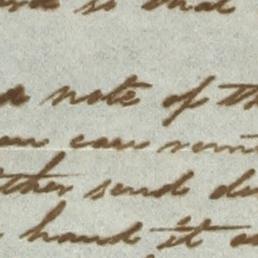 so that
a note of th
can remi
ther send di
hand it a